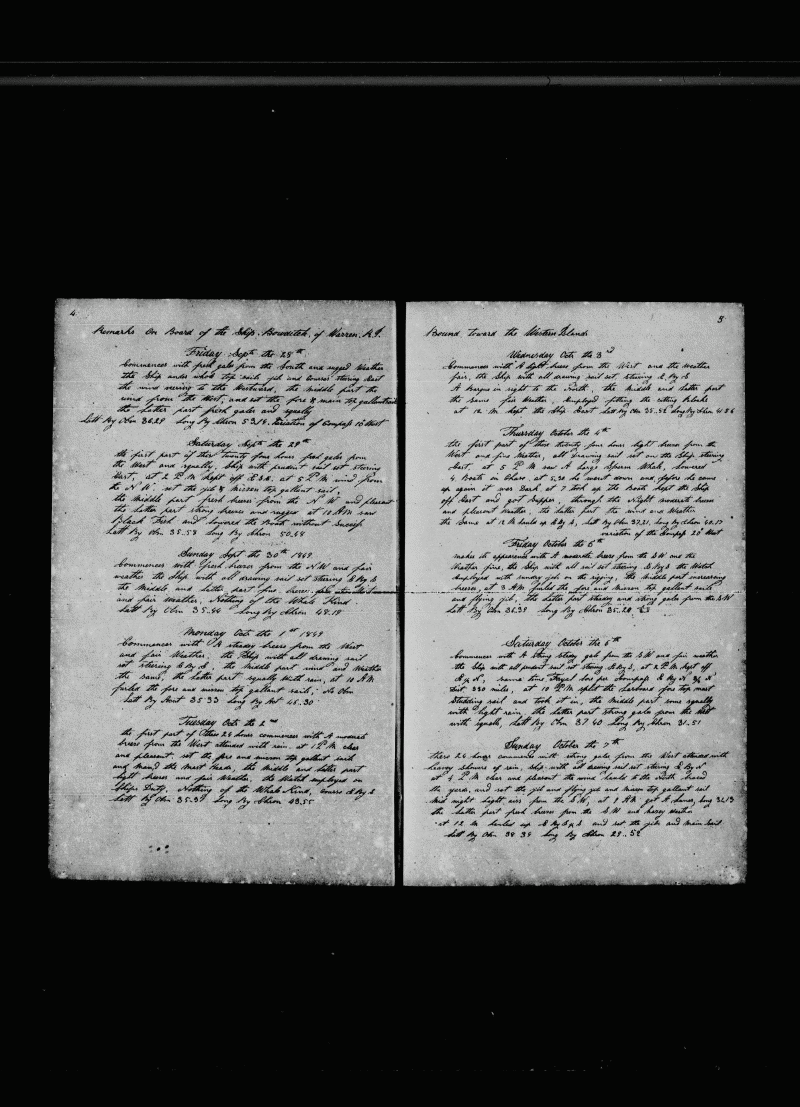 4
Remarks On Board of the Ship Bowditch, of Warren. R.I.
Friday Sept the 28th
Commences with fresh gales from the South and rugged Weather
the Ship under whole top sails jib and courses stering East
the wind veering to the Westward, the Middle part the
wind from the West, and set the fore & main top gallantsails
the Latter part fresh gales and squaly
Latt By Obn 36.29 Long By Chron 53.18. Variation of Compass 16 West
Saturday Septn the 29th
the first part of these twenty four hours fresh gales from
the West and squaly, Ship with prudent sail set stering
East, at 2 P.M kept off E.S.E. at 5 P.M wind from
the N.W. set the jib & Mizzen top gallant sail,
the Middle part fresh breeses from the N.W and pleasant
the Latter part strong breeses and rugged at 10 AM saw
Black Fish and Lowered the Boats without Sucsess
Latt By Obn 35.53 Long By Chron 50.48
Sunday Sept the 30th 1849
Commences with fresh breeses from the N.W and fair
weather the Ship with all drawing sail set stering E By S
the Middle and Latter part fine breeses
and fair weather. Nothing of the Whale Kind
Latt By Obn 35.44 Long By Chron 48.18
Monday Octo the 1st 1849
Commences with A steady breeses from the West
and fair Weather, the Ship with all drawing sail
set steering E By S, the Middle part wind and Weather
the same, the Latter part squally With rain, at 10 A.M
furled the fore and mizzen top gallant sails; No Obn
Latt By Acnt 35 33 Long By Act 45.30
Tuesday Octo the 2nd
the first part of these 24 hours commences with A moderate
breese from the West attended with rain. at 1 P.M clear
and pleasent. set the fore and mizzen top gallant sails
and Man'd the Mast Heads, the Middle and Latter part
light breeses and fair Weather, the Watch employed on
Ships Duty, Nothing of the Whale Kind, course E By S
Latt By Obn 35.31 Long By Chron 43.55
5
Bound Toward the Western Islands
Wednesday Octo the 3rd
Commences with A light breese from the West and the weather
fair, the Ship with all drawing sail set, stering E By S
A Barque in sight to the North, the Middle and Latter part
the same fair Weather, Employed fitting the cutting falls
at 12 M. kept the Ship East Latt By Obn 35.52 Long By Chron 41.56
Thursday October the 4th
the first part of these twenty four hours light breeses from the
West and fine Weather, all drawing sail set on the Ship stering
East, at 5 P.M saw A Large Sperm Whale, Lowered
4 Boats in Chase, at 5.30 he went down and before he came
up again it was Dark, at 7 took up the Boats kept the Ship
off East and got Supper, through the Night moderate breese
and pleasent Weather, the Latter part the wind and Weather
the Same at 12 M hauls up E By S, Latt By Obn 37.21. Long By Chron 40.17
variation of the Compass 20 West
Friday October the 5th
makes its appearance with A moderate breese from the SW and the
Weather fine, the Ship with all sail set stering E By S the Watch
Employed with sundry jobs on the rigging, the Middle part increasing
breeses, at 3 AM furled the fore and Mizzen top gallant sails
and flying jib, the Latter part steady and strong gales from the S.W
Latt By Obn 36.39 Long By Chron 35.28
Saturday October the 6th
Commences with A Strong Steady gale from the S.W and fair weather
the Ship with all prudent sail set stering E By S, at 2 P.M kept off
same time Fayal bore per Compass
Dist 330 miles, at 10 P.M split the Larboard fore top mast
Studding sail and took it in, the Middle part some squally
with light rain, the Latter part strong gales from the West
with squalls, Latt By Obn 37 40 Long By Chron 31.51
Sunday October the 7th
these 24 hours commences with strong gales from the West attended with
heavey Showers of rain, Ship with all drawing sail set stering E By N
at 4 P.M clear and pleasent the wind hauls to the North braced
the yards, and set the jib and flying jib and Mizzen top gallant sail
Mid night light airs from the S.W, at 1 AM got A Lunar, Long 31.13
the Latter part fresh breeses from the S.W and hazey weather
at 12 M hauled up and set the jib and Main sail
Latt By Obn 38 39 Long By Chron 29..52